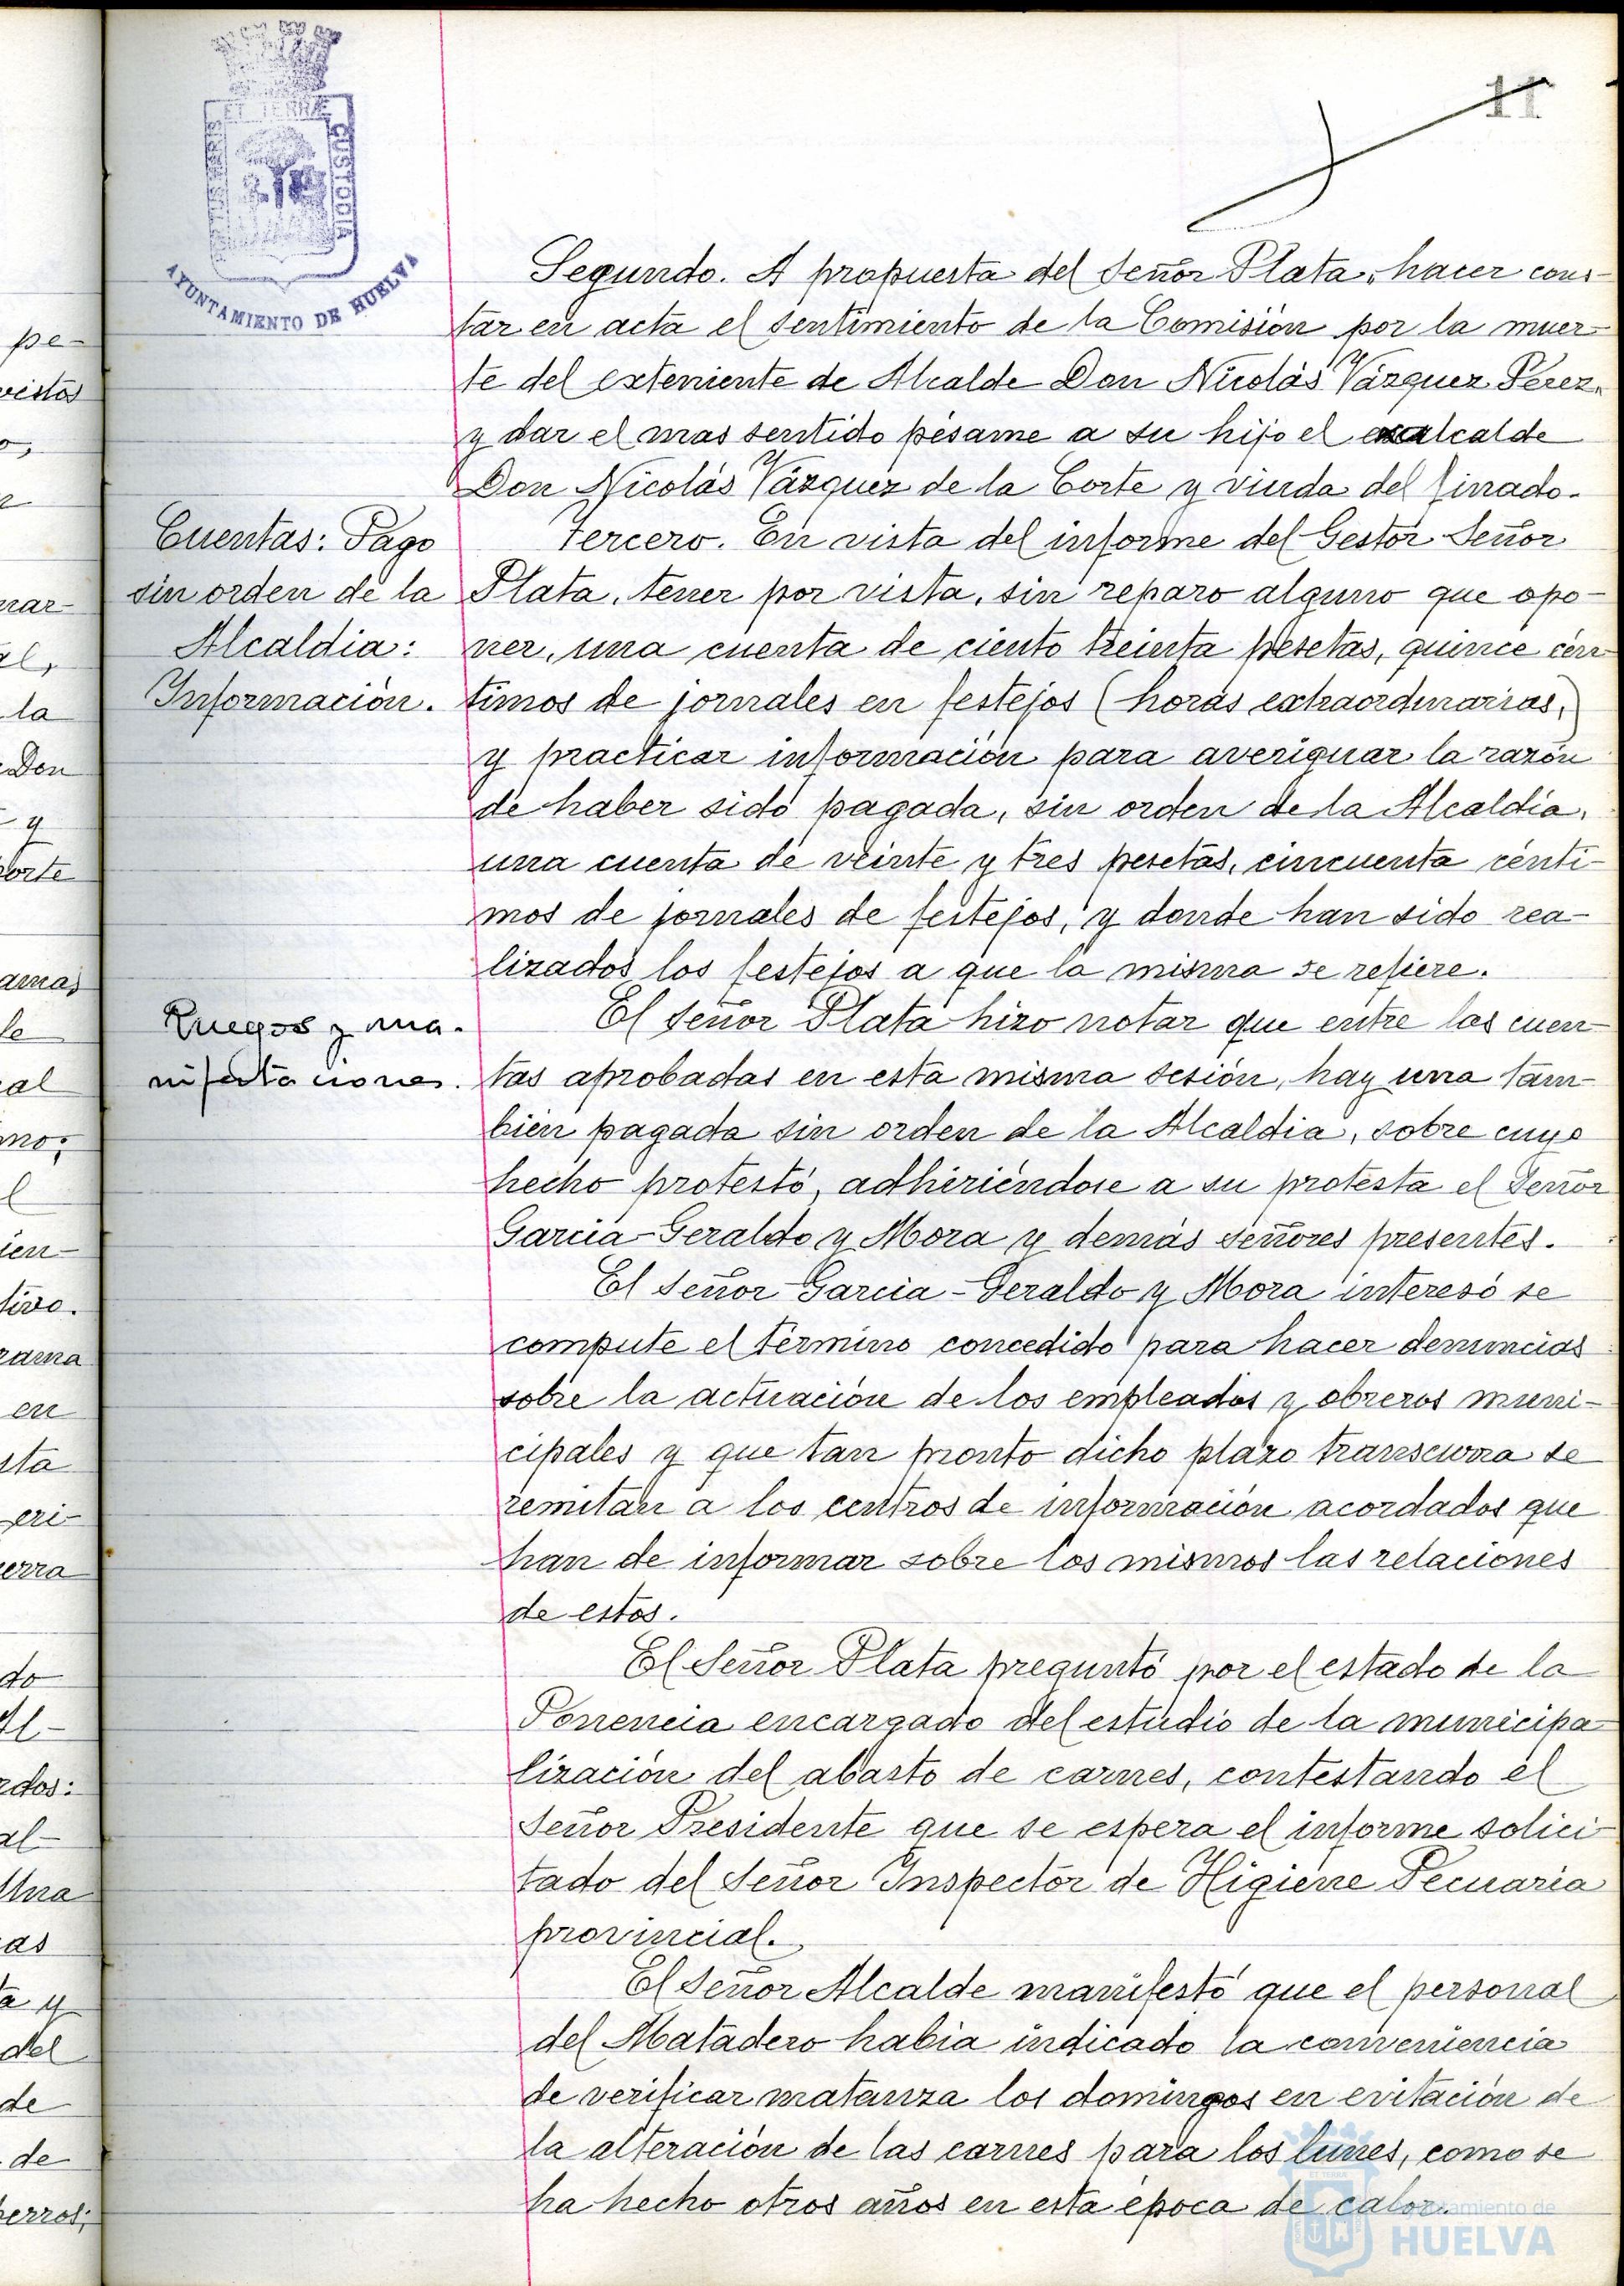 11
ET TERRÆ
CUSTODIA
AYUNTAMIENTO DE HUELVA
Segundo. A propuesta del Señor Plata, hacer cons-
tar en acta el sentimiento de la Comisión por la muer-
te del exteniente de Alcalde Don Nicolás Vázquez Pérez,
y dar el mas sentido pésame a su hijo el exalcalde
Don Nicolás Vázquez de la Corte y viuda del finado.
Cuentas: Pago
sin orden de la
Alcaldia:
Información.
Tercero. En vista del informe del Gestor Señor
Plata, tener por vista, sin reparo alguno que opo-
ner, una cuenta de ciento treinta pesetas, quince cén-
timos de jornales en festejos (horas extraordinarias)
y practicar información para averiguar la razón
de haber sido pagada, sin orden de la Alcaldía,
una cuenta de veinte y tres pesetas, cincuenta cénti-
mos de jornales de festejos, y donde han sido rea-
lizados los festejos a que la misma se refiere.
Ruegos y ma-
nifestaciones.
El Señor Plata hizo notar que entre las cuen-
tas aprobadas en esta misma sesión, hay una tam-
bién pagada sin orden de la Alcaldia, sobre cuyo
hecho protestó, adhiriéndose a su protesta el Señor
Garcia-Geraldo y Mora y demás señores presentes.
El Señor Garcia-Geraldo y Mora interesó se
compute el término concedido para hacer denuncias
sobre la actuación de los empleados y obreros muni-
cipales y que tan pronto dicho plazo transcurra se
remitan a los centros de información acordados que
han de informar sobre los mismos las relaciones
de estos.
El Señor Plata preguntó por el estado de la
Ponencia encargado del estudio de la municipa-
lización del abasto de carnes, contestando el
Señor Presidente que se espera el informe solici-
tado del Señor Inspector de Higiene Pecuaria
provincial.
El Señor Alcalde manifestó que el personal
del Matadero habia indicado la conveniencia
de verificar matanza los domingos en evitación de
la alteración de las carnes para los lunes, como se
ha hecho otros años en esta época de calor.
Ayuntamiento de
HUELVA